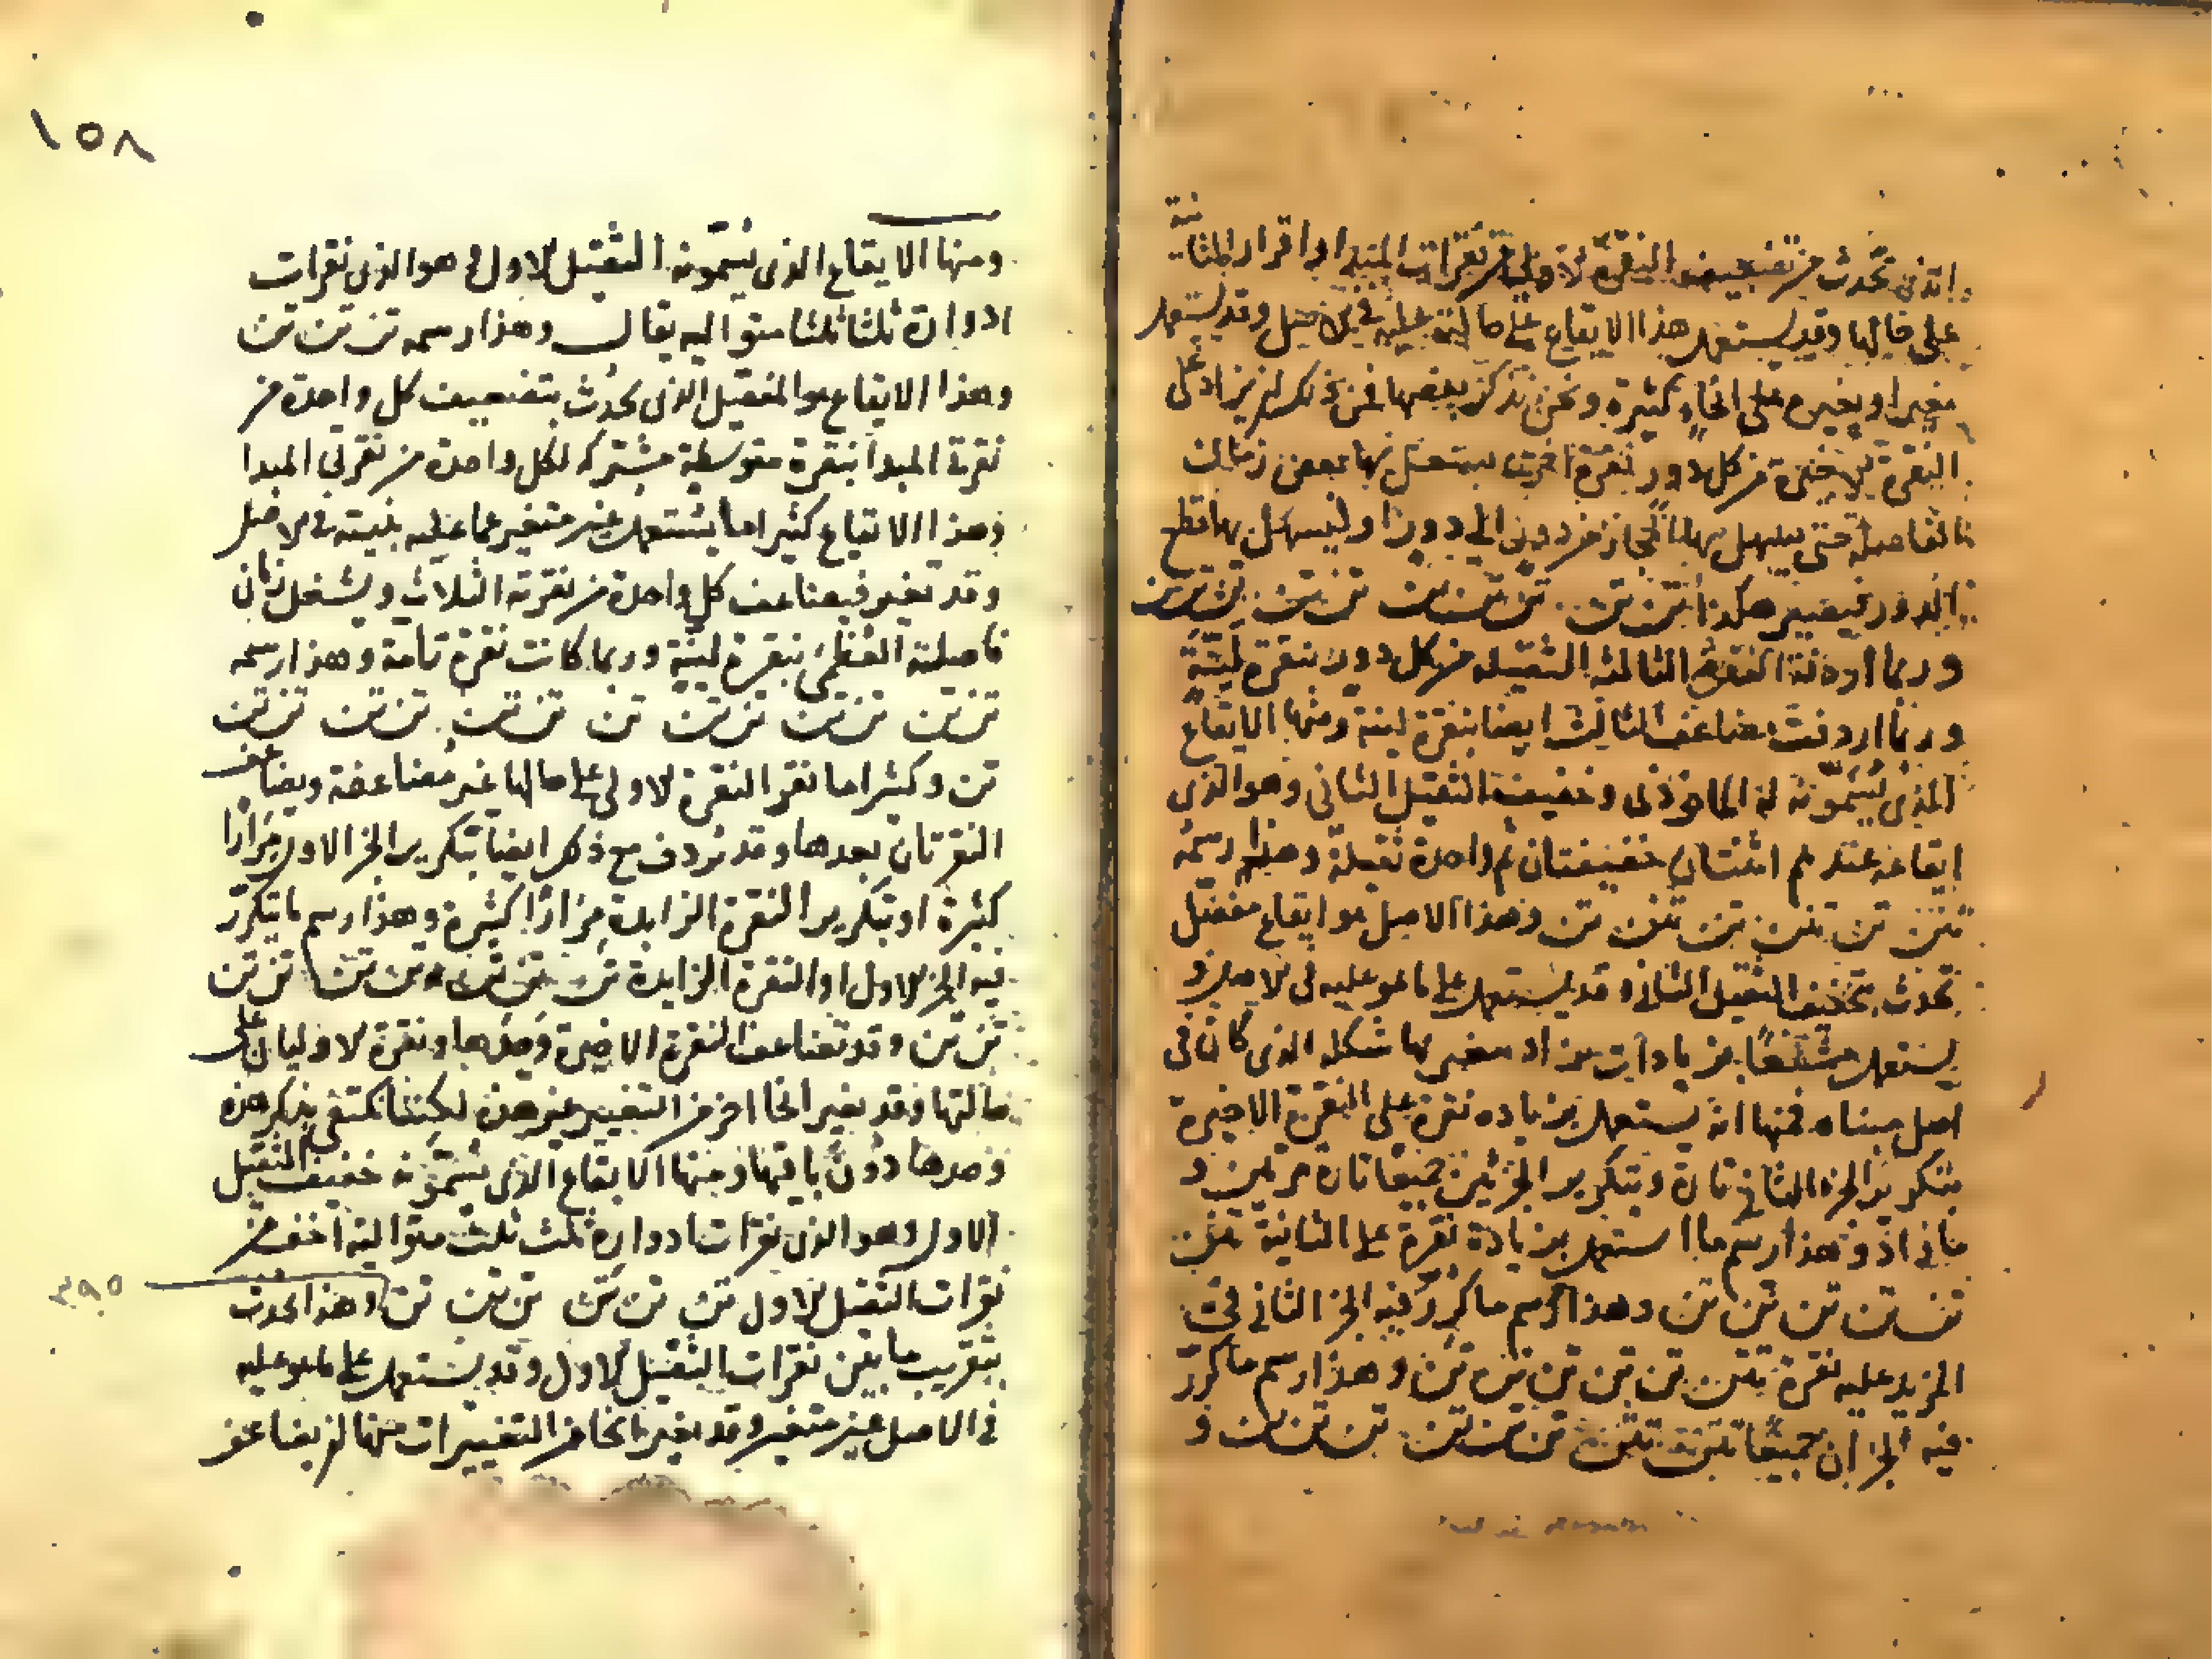 الذى تحدث من تضعيف النقرة الاولى من نقرات المبدا واقرار الثانية
على حالها وقد يستعمل هذا الايقاع على ما بنية عليه فى الاصل وقد يستعمل
مغيرا ويغير على انحاء كثيرة ونحن نذكر بعضها فمن ذلك ان يزاد على
النقرة الاخيرة من كل دور نقرة اخرى يستعمل بها بعض زمان
الفاصلة حتى يسهل بها المجاز من دور الى دور او ليسهل بها قطع
الدور فيصير هكذا تنن تن تن تنن تن تن تن
وربما اردفت النقرة الثالثة الثقيلة من كل دور بنقرة لينة
وربما اردفت مضاعف الثالث ايضا بنقرة لينة ومنها الايقاع
الذى يسمونه الماخورى وخفيف الثقيل الثانى وهو الذى
ايقاعه عندهم اثنتان خفيفتان ثم واحدة ثقيلة وهذا رسمه
تنن تن تنن تن تنن تن وهذا الاصل هو ايقاع مفصل
يحدث بتخفيف الثقيل الثانى وقد يستعمل على ما هو عليه فى الاصل و
يستعمل بزيادات تزاد مغير بها شكله الذى كان فى
اصل مبناه فمنها انه يستعمل بزياده نقرة على النقرة الاخيرة
بتكرير الجزء الثانى تارة وبتكرير الجزئين جميعا تارة مرتين و
وهذا رسم ما استعمل بزيادة نقرة على الثانية تنن
تن تن تن تن تن وهذا رسم ما كرر فيه الجز الثانى فى
المزيد عليه نقرة تنن تن تن تن تن تن وهذا رسم ما كرر
فيه الجزان جميعا تنن تنن تن تن تن تن تن تن و
١٥٨
ومنها الايقاع الذى يسمونه الثقيل الاول وهو الذى نقرات
ادواره ثلثا ثلثا متواليه ثقال وهذا رسمه تن تن تن
وهذا الايقاع هو المفصل الذى يحدث بتضعيف كل واحدة من
نقرتى المبدا بنقرة متوسطة مشتركه لكل واحدة من نقرتى المبدا
وهذا الايقاع كثيرا ما يستعمل غير متغير عما عليه بنيته فى الاصل
وقد تغير فيضاعف كل واحدة من نقرته الثلاث ويشغل زمان
فاصلته العظمى بنقرة لينة وربما كانت نقرة تامة وهذا رسمه
تن تن تن تن تن تن تن تن تن تن تن تن تن
تن وكثيرا ما نقر النقرة الاولى على حالها غير مضاعفة ويضاعف
النقرتان بعدها وقد تردف مع ذلك ايضا بتكرير الجز الاول مرارا
كثيرة او بتكرير النقرة الزايدة مرارا كثيرة وهذا رسم ما تكرر
فيه الجز الاول او النقرة الزايدة تن تن تن تن تن تن تن
تن تن وقد تضاعف النقرة الاخيرة وحدها ونقرة الاوليان على
حالتها وقد يغير انحا اخر من التغيير غير هذه لكننا نكتفى بذكر هذه
وحدها دون باقيها ومنها الايقاع الذى يسمونه خفيف الثقيل
الاول وهو الذى نقرات ادواره ثلث ثلث متوالية اخف من
نقرات الثقيل الاول تن تن تن تن تن تن وهذا يحدث
٣٩٥
بتقريب ما بين نقرات الثقيل الاول وقد يستعمل على ما هو عليه
فى الاصل غير متغير وقد يغير بانحا من التغييرات منها ان يضاعف